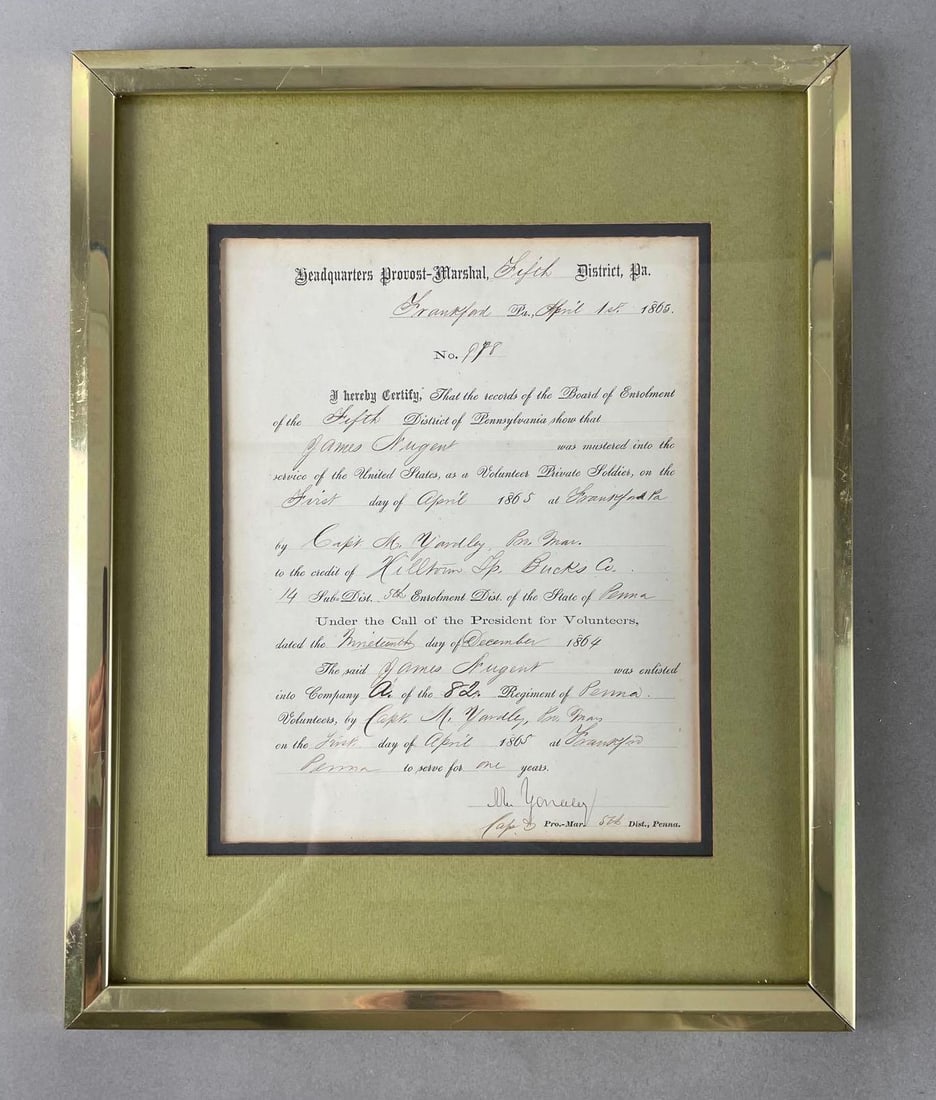 Headquarters Provost-Marshal, Fifth District, Pa.
Frankford Pa., April 1st 1865.
No. 998
I hereby Certify, That the records of the Board of Enrolment
of the Fifth District of Pennsylvania show that
James Nugent was mustered into the
service of the United States, as a Volunteer Private Soldier, on the
First day of April 1865 at Frankford Pa
by Capt M. Yardley, Pro. Mar.
to the credit of Hilltown Tp. Bucks Co.
14 Sub-Dist. 5th Enrolment Dist. of the State of Penna
Under the Call of the President for Volunteers,
dated the Nineteenth day of December 1864
The said James Nugent was enlisted
into Company A. of the 82. Regiment of Penna.
Volunteers, by Capt. M. Yardley, Pro. Mar
on the First day of April 1865 at Frankford
Penna to serve for one years.
M. Yardley
Capt & Pro.-Mar. 5th Dist., Penna.